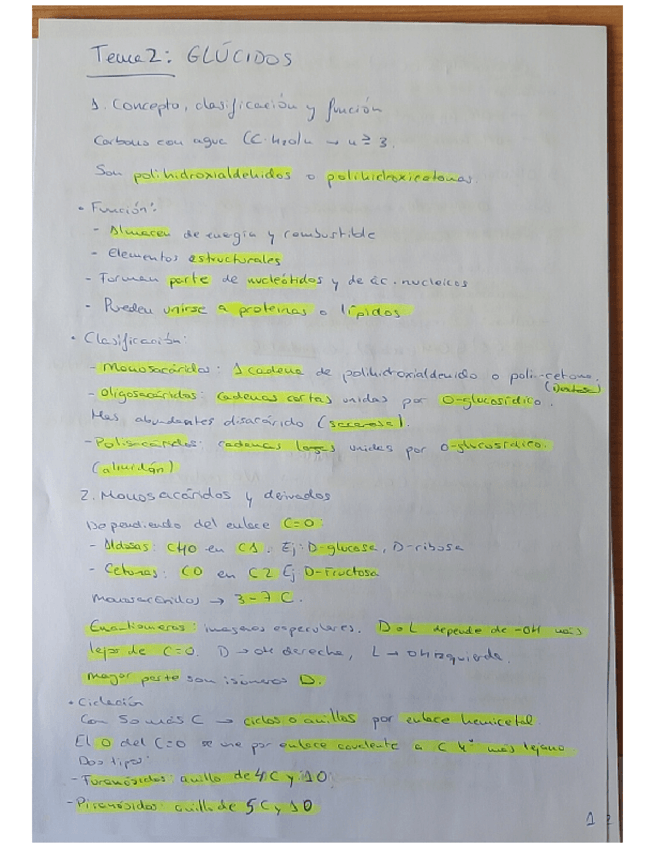 Tema 2: GLÚCIDOS
1. Concepto, clasificación y función
Carbono con agua (C·H2O)n → n ≥ 3.
Son polihidroxialdehidos o polihidroxicetonas.
• Función:
- Almacen de energía y combustible
- Elementos estructurales
- Forman parte de nucleótidos y de ác. nucleicos
- Pueden unirse a proteinas o lípidos
• Clasificación:
- Monosacáridos: 1 cadena de polihidroxialdehido o poli-cetona.
(Dextosa)
- Oligosacáridos: cadenas cortas unidas por O-glucosídico.
Mas abundantes disacárido (sacarosa).
- Polisacáridos: cadenas largas unidas por O-glucosídico.
(almidón)
2. Monosacáridos y derivados
Dependiendo del enlace C=O
- Aldosas: CHO en C1. Ej: D-glucosa, D-ribosa
- Cetonas: CO en C2 Ej D-Fructosa
Monosacáridos → 3-7 C.
Enantiomeros: imagenes especulares. D o L depende de -OH más
lejos de C=O. D → OH derecha, L → OH izquierda.
Mayor parte son isómeros D.
• Ciclación
Con 5 o más C → ciclos o anillos por enlace hemicetal.
El O del C=O se une por enlace covalente a C más lejano.
Dos tipos:
- Furanósidos: anillo de 4C y 1O
- Piranósidos: anillo de 5C y 1O
1